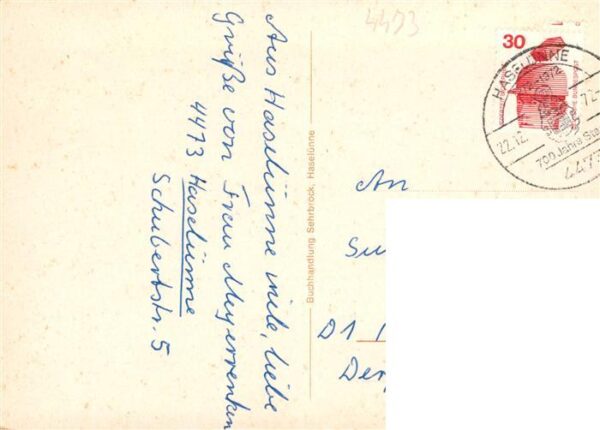 Aus Haselünne viele, liebe
Grüße von Frau Meyerrenken
4473 Haselünne
Schubertstr. 5
Buchhandlung Sehrbrock, Haselünne
4473
30
HASELÜNNE
1972
22.12.
700 Jahre Sta
4473
An
D1